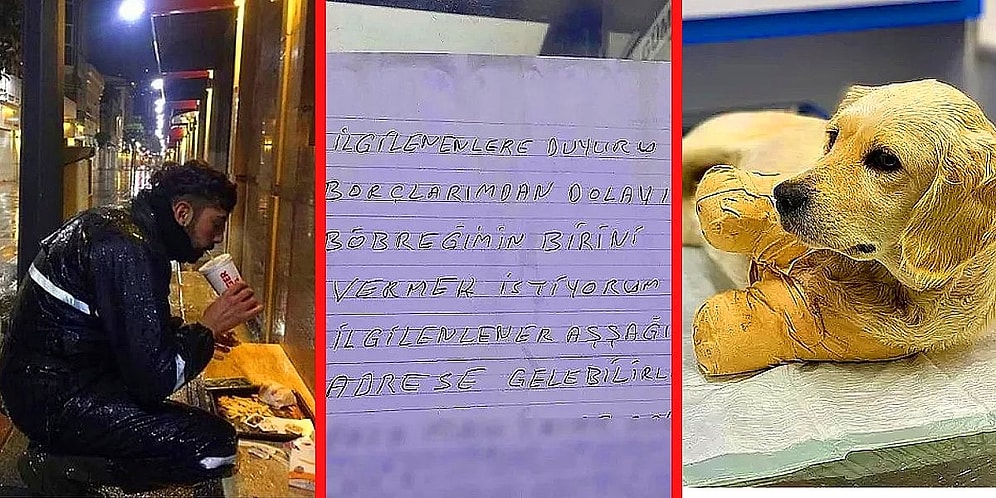 İLGİLENENLERE DUYURU
BORÇLARIMDAN DOLAYI
BÖBREĞİMİN BİRİNİ
VERMEK İSTİYORUM
İLGİLENLENER AŞŞAĞI
ADRESE GELEBİLİRL